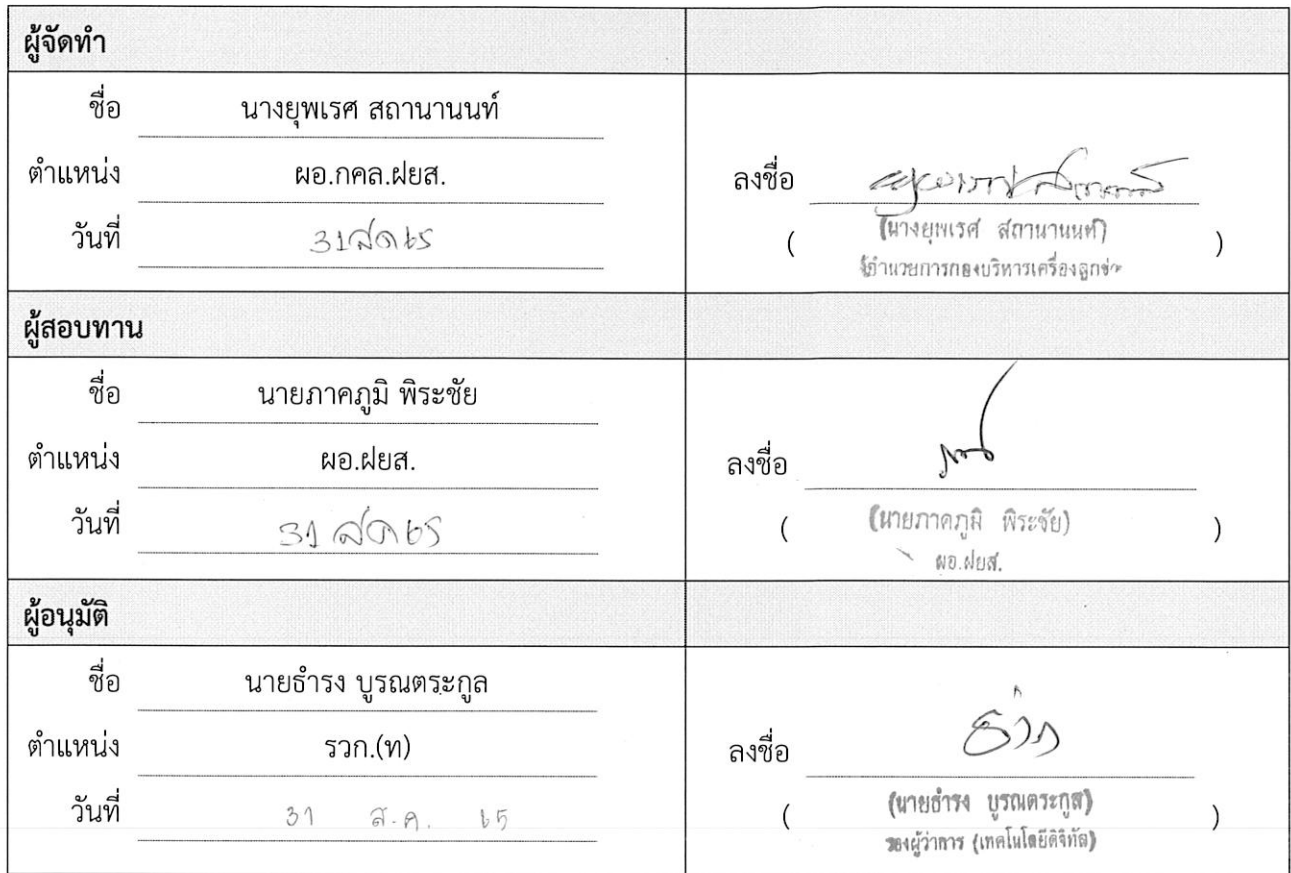 ผู้จัดทำ
ชื่อ นางยุพเรศ สถานานนท์
ตำแหน่ง ผอ.กคล.ฝยส.
วันที่ 31 สค 65
ลงชื่อ
( (นางยุพเรศ สถานานนท์) )
ผู้อำนวยการกองบริหารเครื่องลูกข่าย
ผู้สอบทาน
ชื่อ นายภาคภูมิ พิระชัย
ตำแหน่ง ผอ.ฝยส.
วันที่ 31 สค 65
ลงชื่อ
( (นายภาคภูมิ พิระชัย) )
ผอ.ฝยส.
ผู้อนุมัติ
ชื่อ นายธำรง บูรณตระกูล
ตำแหน่ง รวก.(ท)
วันที่ 31 ส.ค. 65
ลงชื่อ
( (นายธำรง บูรณตระกูล) )
รองผู้ว่าการ (เทคโนโลยีดิจิทัล)